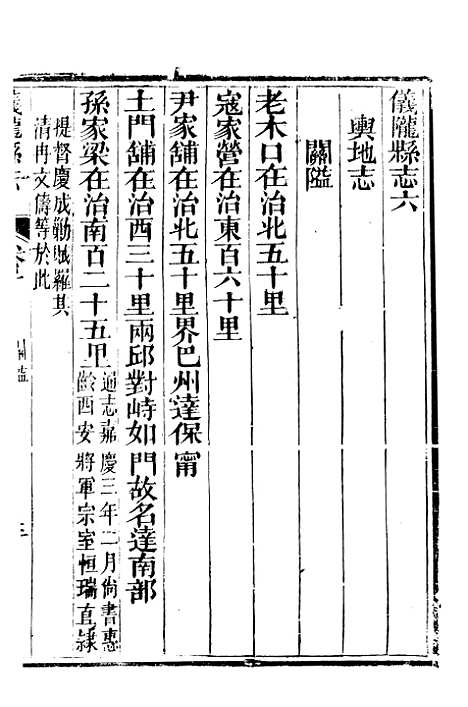 儀隴縣志六
輿地志
關隘
老木口在治北五十里
寇家營在治東百六十里
尹家舖在治北五十里界巴州達保甯
土門舖在治西三十里兩邱對峙如門故名達南部
孫家梁在治南百二十五里通志嘉慶三年二月尙書惠
齡西安將軍宗室恒瑞直隸
提督慶成勦賊羅其
清冉文儔等於此